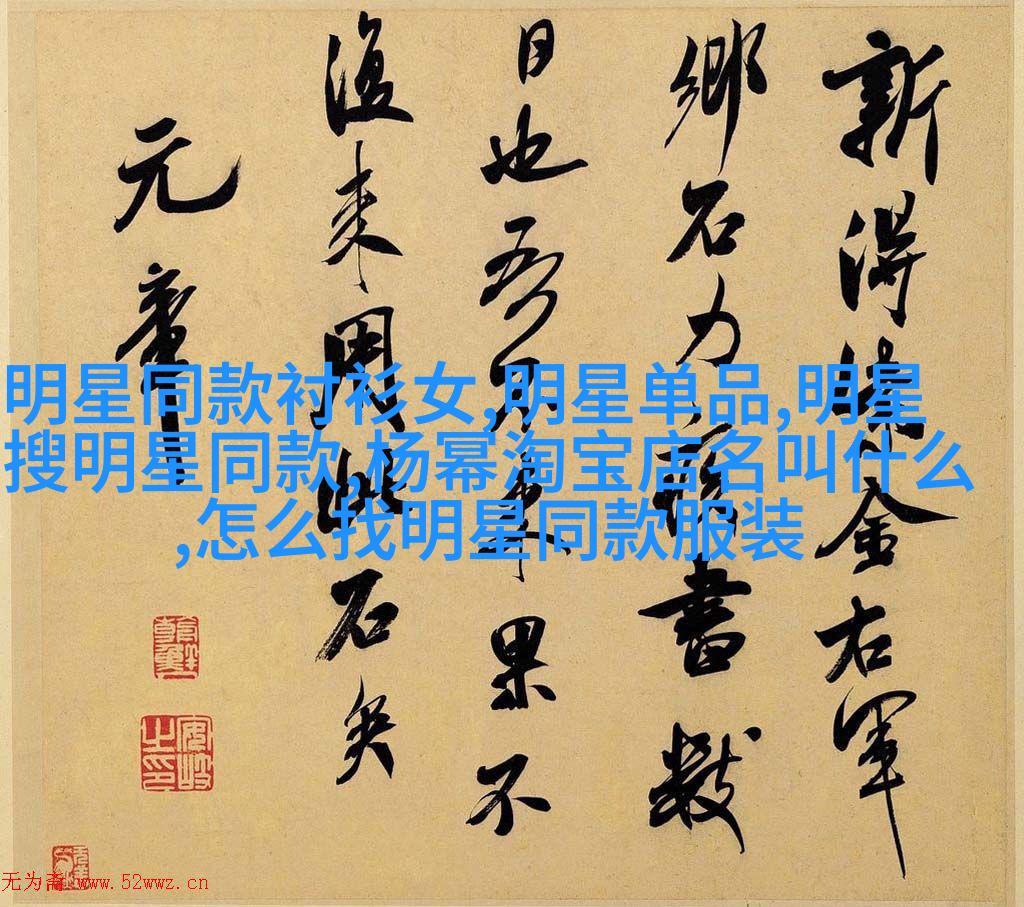 新得紫金右軍
鄉石力疾書數
日也吾不來果不
復來用此石矣
元章
明星同款衬衫女,明星单品,明星
搜明星同款,杨幂淘宝店名叫什么
,怎么找明星同款服装
安岐之印
无为斋 www.52wwz.cn